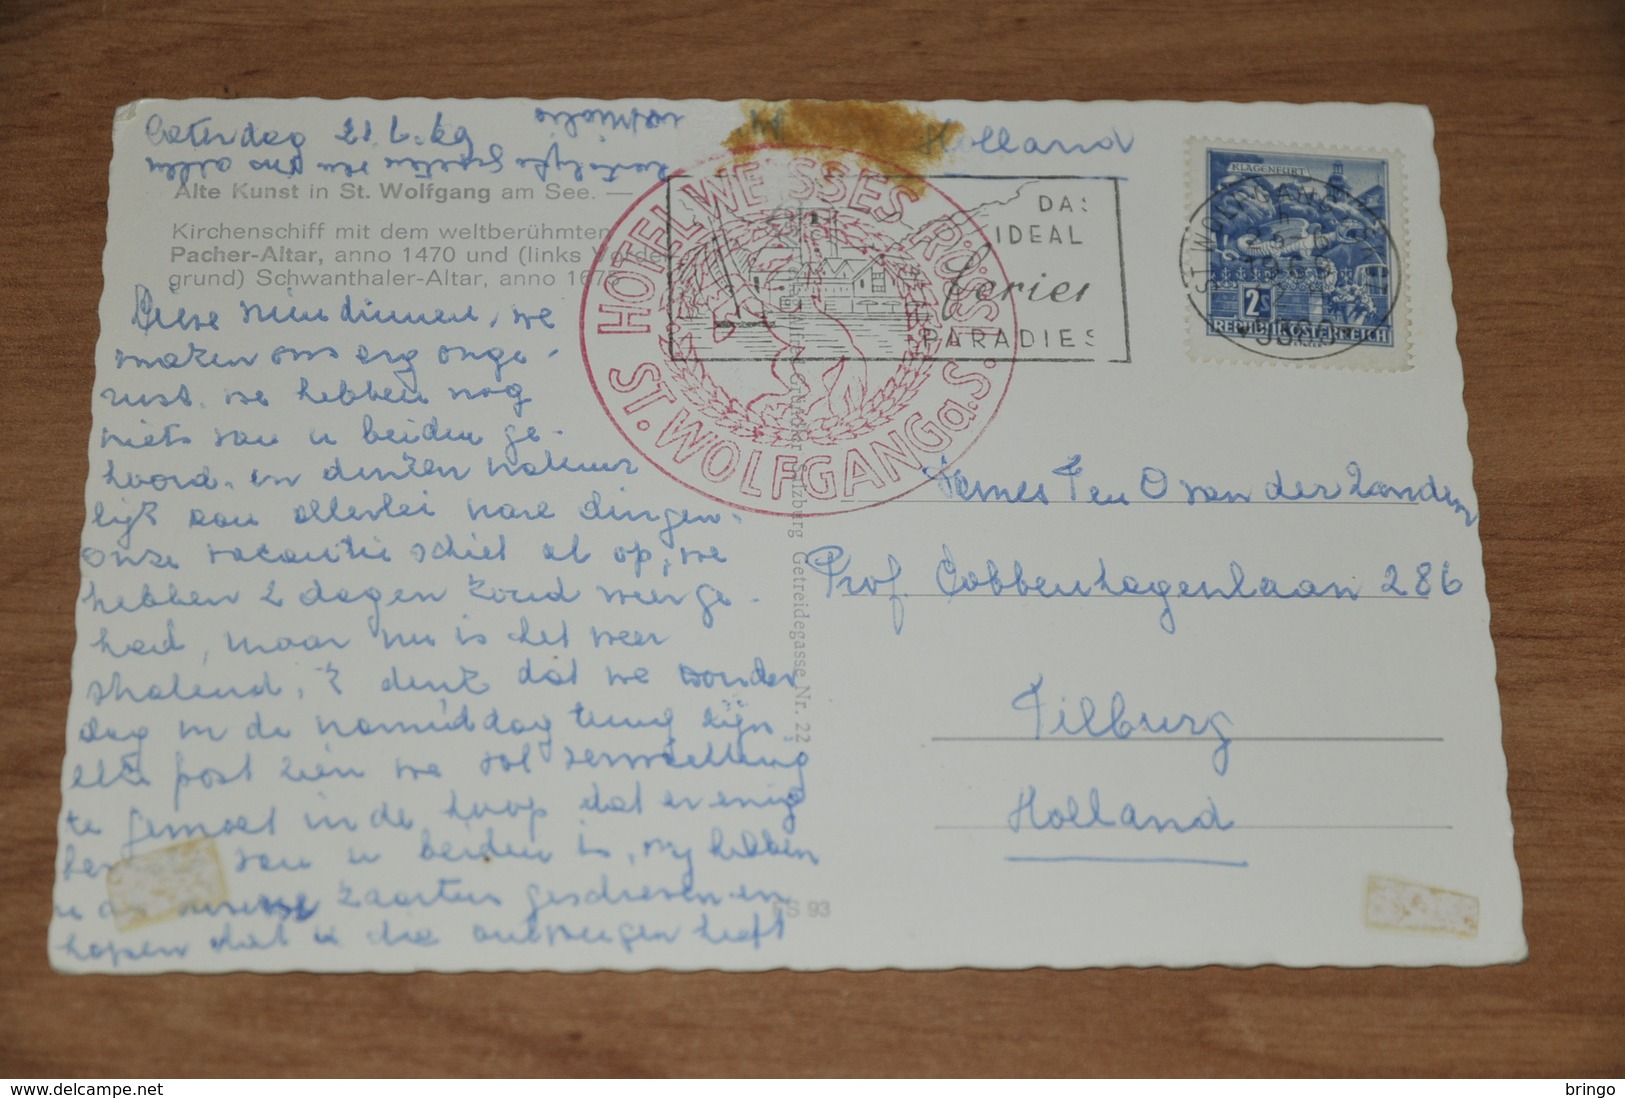 Zaterdag 21.6.69
Holland
Alte Kunst in St. Wolfgang am See. —
Kirchenschiff mit dem weltberühmten
Pacher-Altar, anno 1470 und (links Vorder-
grund) Schwanthaler-Altar, anno 1675
Lieve vriendinnen, we
maken ons erg onge-
rust. we hebben nog
niets van u beiden ge-
hoord. en denken natuur
lijk aan allerlei nare dingen.
onze vacantie schiet al op, we
hebben 2 dagen koud weer ge-
had, maar nu is het weer
stralend, ik denk dat we donder
dag in de namiddag terug zijn.
elke post zien we vol verwachting
te gemoet in de hoop dat er enig
van u beiden is, wij hebben
u kaarten geschreven en
hopen dat u die ontvangen heeft
HOTEL WEISSES RÖSSL
ST. WOLFGANG a. S.
DAS
IDEAL
Ferien
PARADIES
KLAGENFURT
2S
REPUBLIK ÖSTERREICH
ST. WOLFGANG
1969
Salzburg Getreidegasse Nr. 22
PS 93
Dames Ten O van der Zanden
Prof Cobbenhagenlaan 286
Tilburg
Holland
bringo